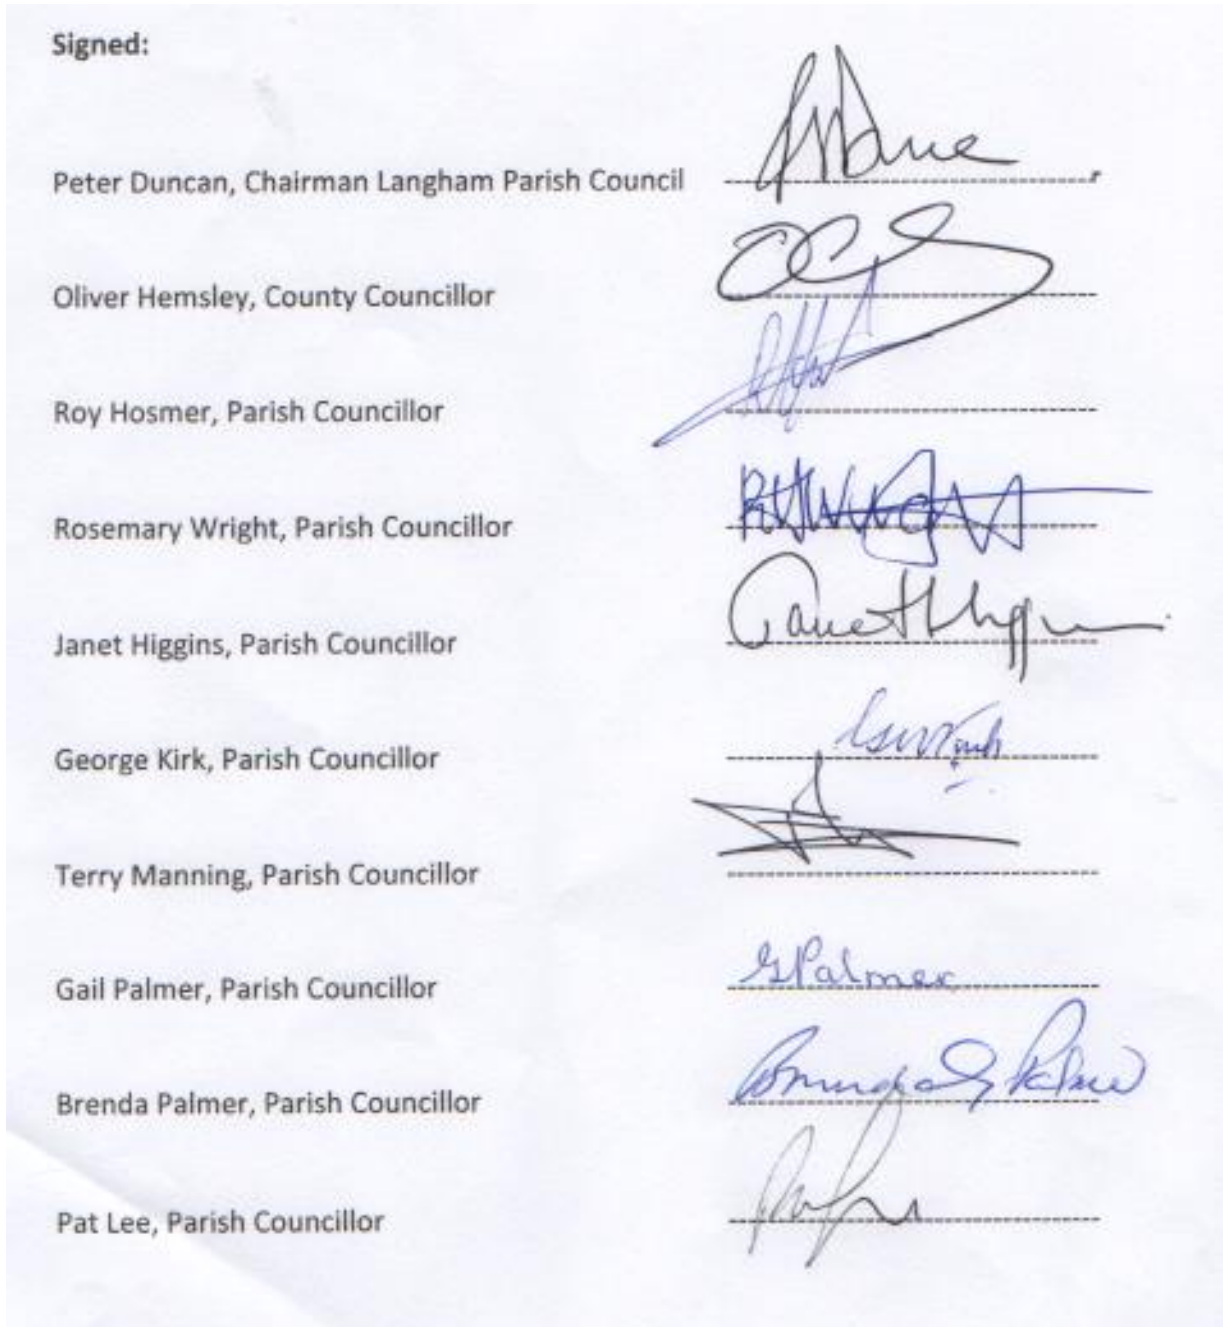 Signed:
Peter Duncan, Chairman Langham Parish Council
Oliver Hemsley, County Councillor
Roy Hosmer, Parish Councillor
Rosemary Wright, Parish Councillor
Janet Higgins, Parish Councillor Janet Higgins
George Kirk, Parish Councillor
Terry Manning, Parish Councillor
Gail Palmer, Parish Councillor GPalmer
Brenda Palmer, Parish Councillor
Pat Lee, Parish Councillor